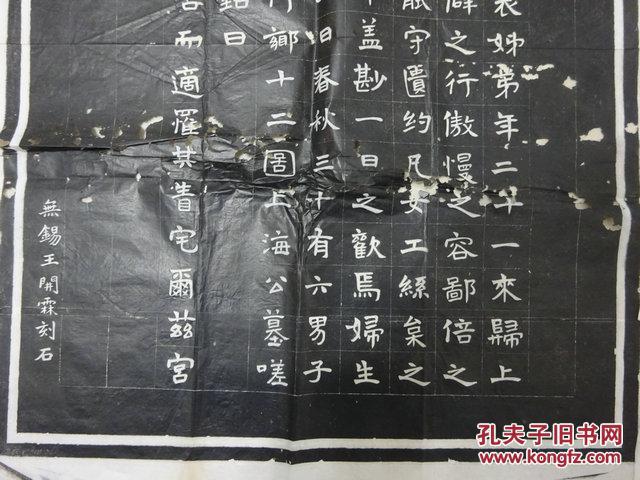 表姊弟年二十一來歸上
辟之行傲慢之容鄙倍之
守匱约凡女工絲枲之
蓋尠一日之歡焉婦生
旧春秋三十有六男子
鄉十二圖上海公墓嗟
銘曰
而適罹其眚宅爾茲宮
無錫王開霖刻石
孔夫子旧书网
www.kongfz.com